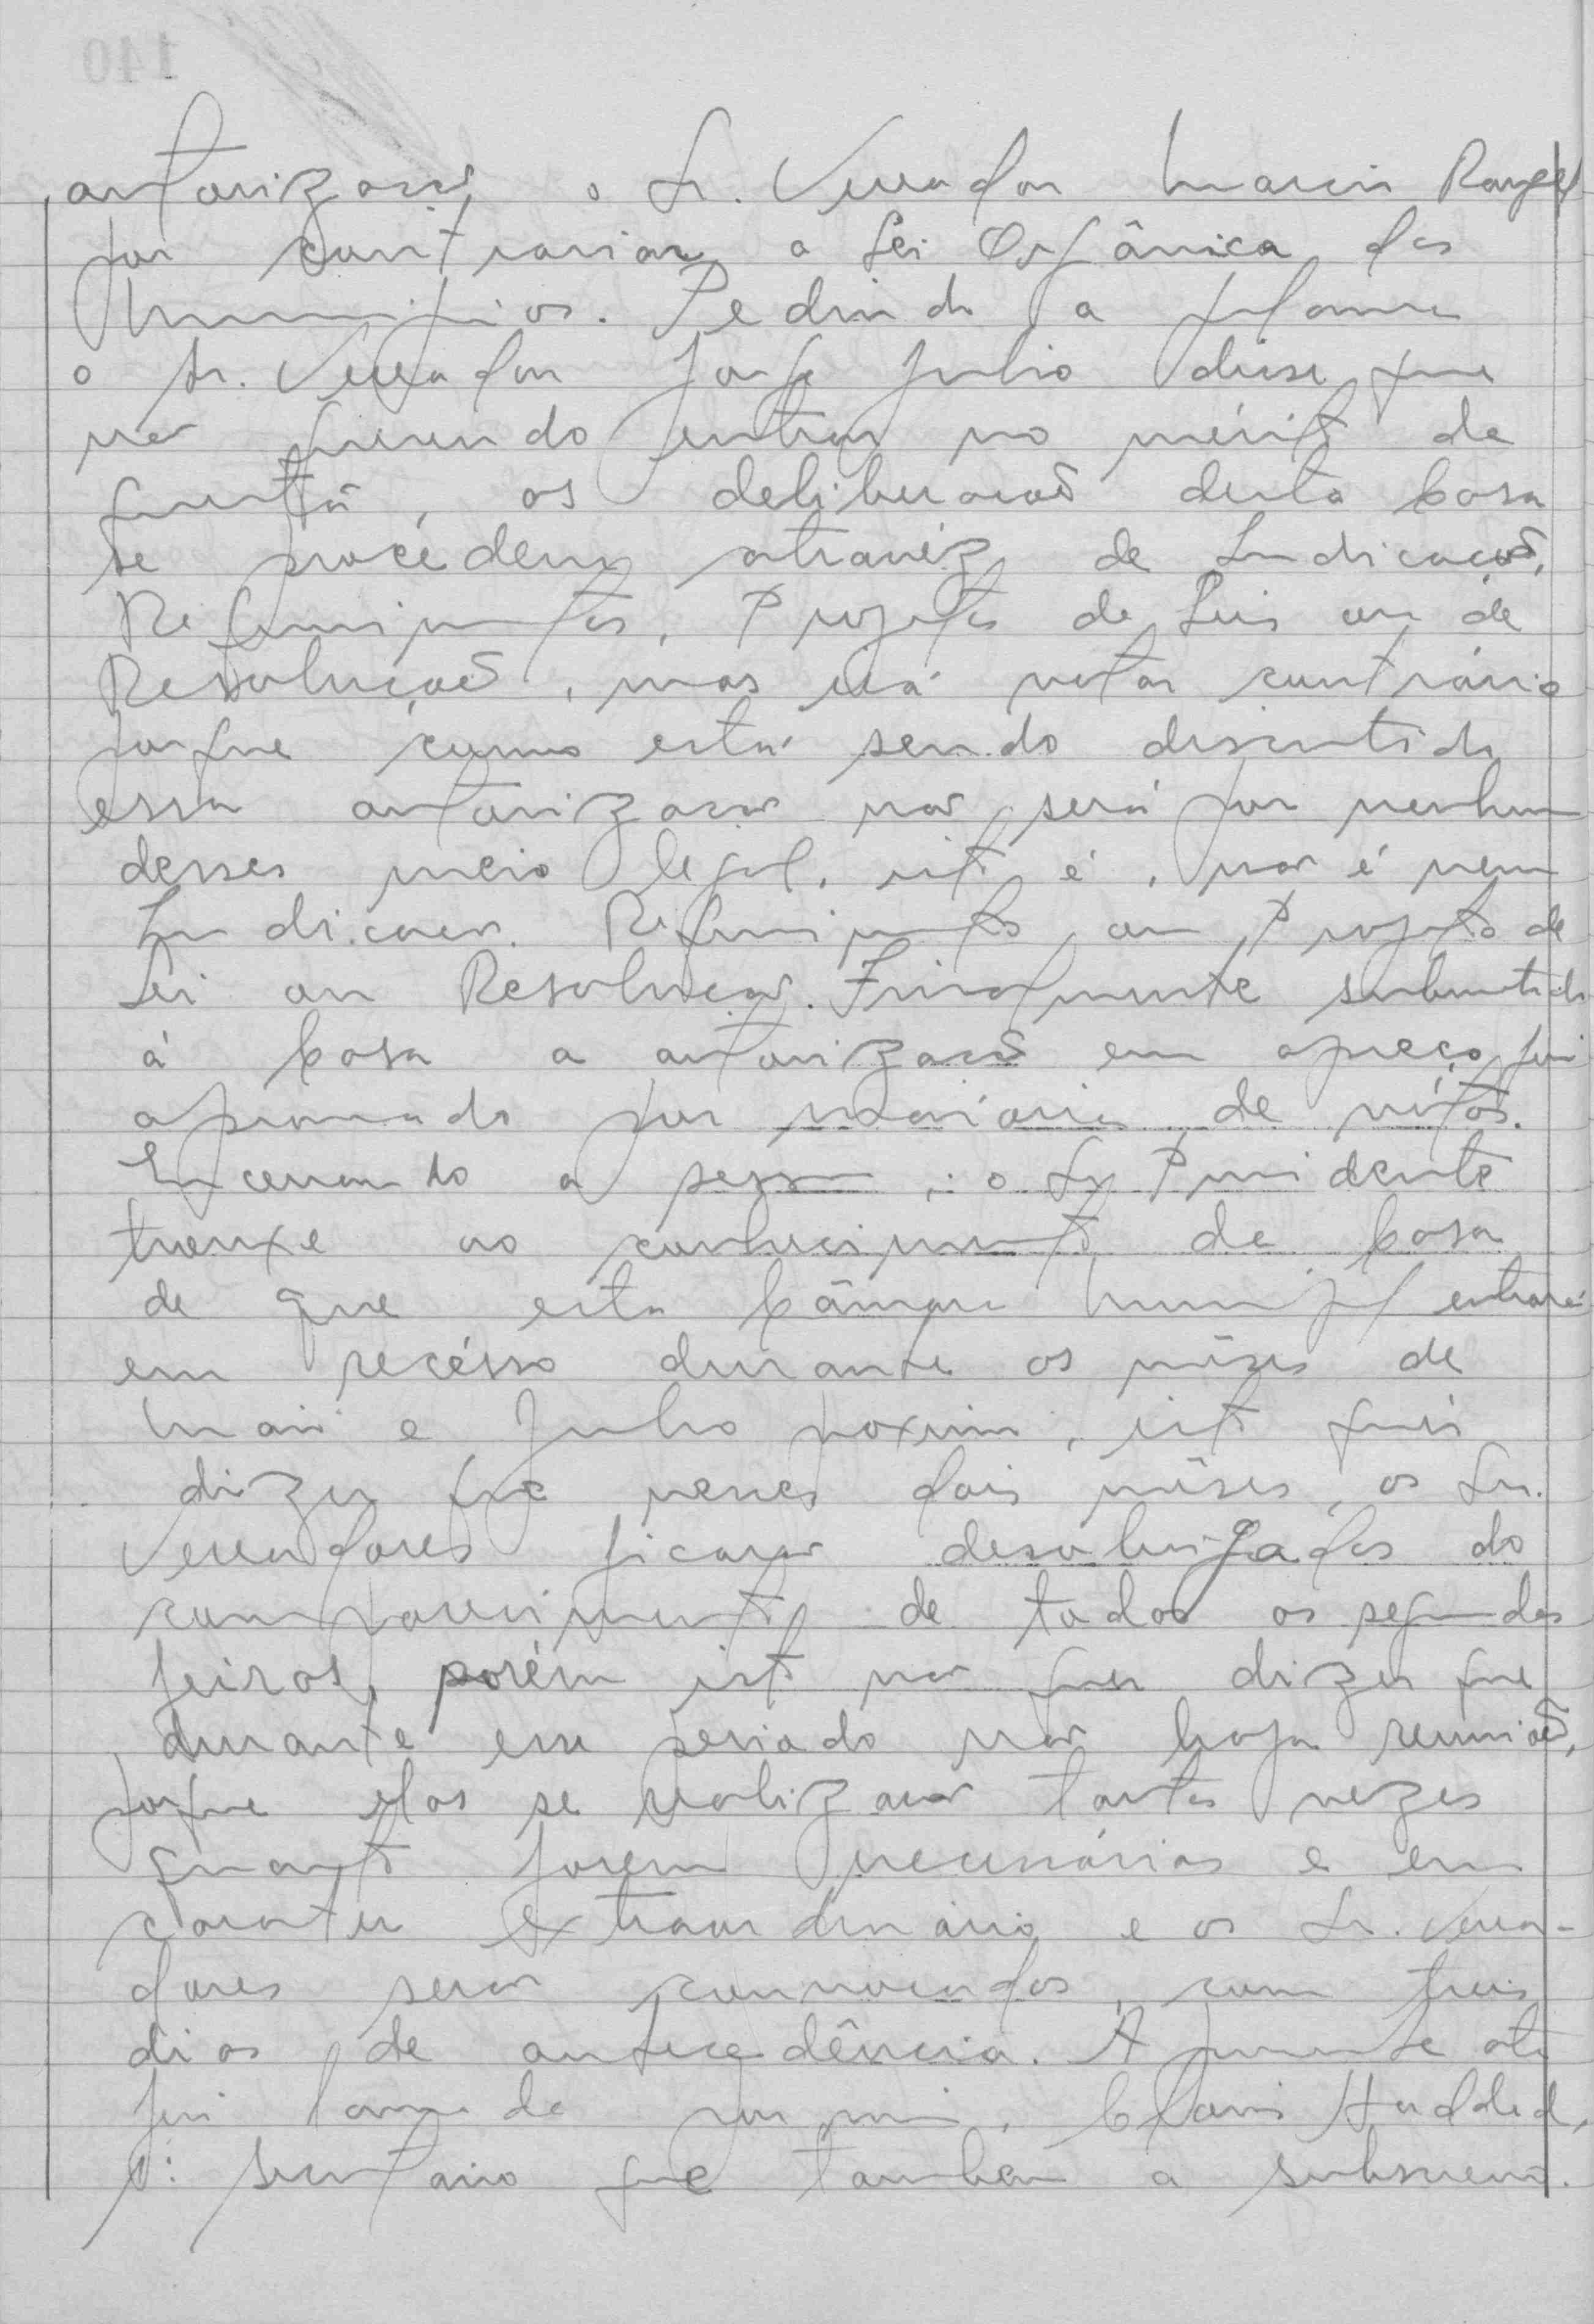 autorização o Sr. Vereador Marcio Rangel
por contrariar a Lei Orgânica dos
Municipios. Pedindo a palavra
o Sr. Vereador Jorge Julio disse que
não querendo entrar no mérito da
questão, as deliberações desta Casa
se procedem atravéz de Indicações,
Requerimentos, Projetos de Leis ou de
Resoluções, mas irá votar contrário
porque como está sendo discutido
essa autorização não será por nenhum
desses meio legal, isto é, não é nem
Indicação. Requerimento, ou Projeto de
Lei ou Resolução. Finalmente submetido
á Casa a autorização em apreço foi
aprovado por maioria de vótos.
Encerrando a sessão, o Sr Presidente
trouxe ao conhecimento da Casa
de que esta Câmara Municipal entrará
em recésso durante os mêses de
Maio e Julho proximo, isto quér
dizer que nesses dois mêses, os Sr.
Vereadores ficarão desobrigados do
comparecimento de todas as segundas
feiras, porém isto não quer dizer que
durante esse periodo não haja reuniões,
porque elas se realizarão tantas vezes
quanto forem necessárias e em
carater extraordinário e os Sr. Verea-
dores serão convocados, com treis
dias de antecedência. A presente ata
foi lavrada por mim, Clovis Haddad,
1º secretário que também a subscrevo.